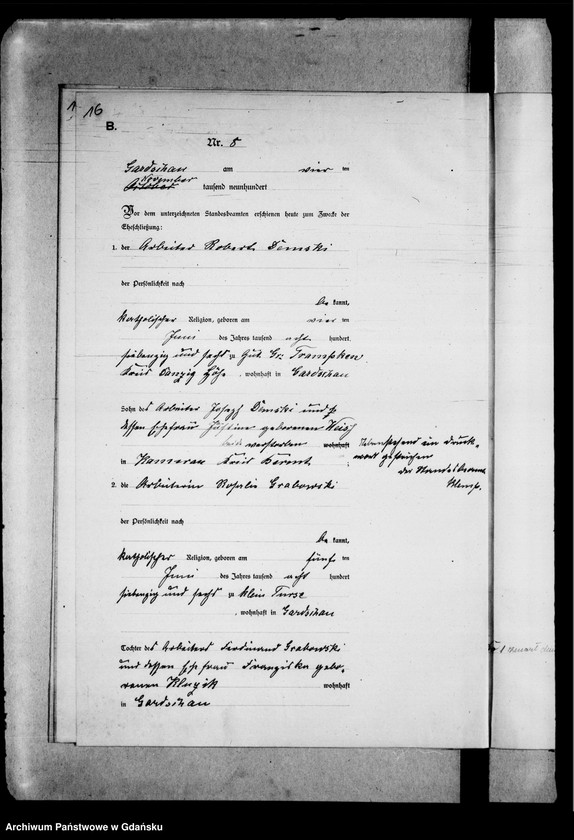 16
B.
Nr. 8
Gardschau am vier ten
November
October tausend neunhundert
Vor dem unterzeichneten Standesbeamten erschienen heute zum Zwecke der
Eheschließung:
1. der Arbeiter Robert Demski
der Persönlichkeit nach
be kannt,
katholischer Religion, geboren am vier ten
Juni des Jahres tausend acht hundert
siebenzig und sechs zu Gut Gr. Trampken
Kreis Danzig Höhe, wohnhaft in Gardschau
Sohn des Arbeiter Joseph Demski und
dessen Ehefrau geborenen
beide verstorben wohnhaft
in Kameran Kreis Berent;
Nebenstehend ein Druck-
wort gestrichen
der Standesbeamte
2. die Arbeiterin Rosalie Grabowski
der Persönlichkeit nach
be kannt,
katholischer Religion, geboren am fünf ten
Juni des Jahres tausend acht hundert
siebenzig und sechs zu klein Turse
, wohnhaft in Gardschau
Tochter des Arbeiters Ferdinand Grabowski
und dessen Ehefrau Franziska gebo-
renen wohnhaft
in Gardschau
Archiwum Państwowe w Gdańsku